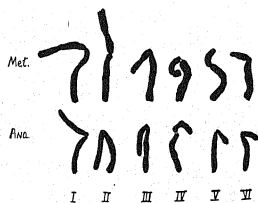 Met.
Ana.
I II III IV V VI